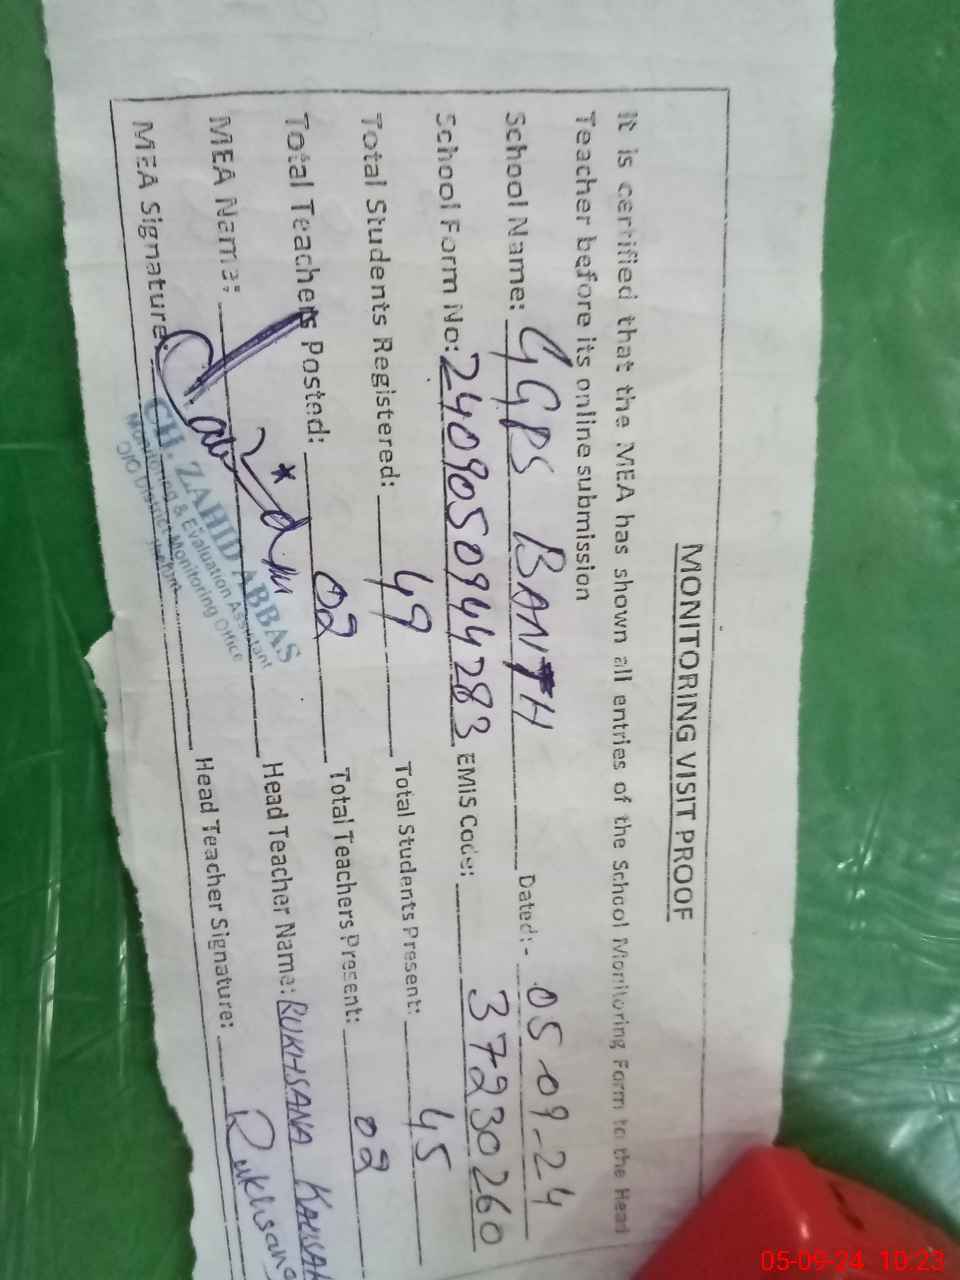 MONITORING VISIT PROOF
It is certified that the MEA has shown all entries of the School Monitoring Form to the Head
Teacher before its online submission
School Name: GGPS BANTH Dated:- 05-09-24
School Form No: 240905094428​3 EMIS Code: 37230260
Total Students Registered: 49 Total Students Present: 45
Total Teachers Posted: 02 Total Teachers Present: 02
MEA Name: Head Teacher Name: RUKHSANA
MEA Signature: Head Teacher Signature: Rukhsana
CH. ZAHID ABBAS
Monitoring & Evaluation Assistant
O/O District Monitoring Office
Jhelum
05-09-24 10:23